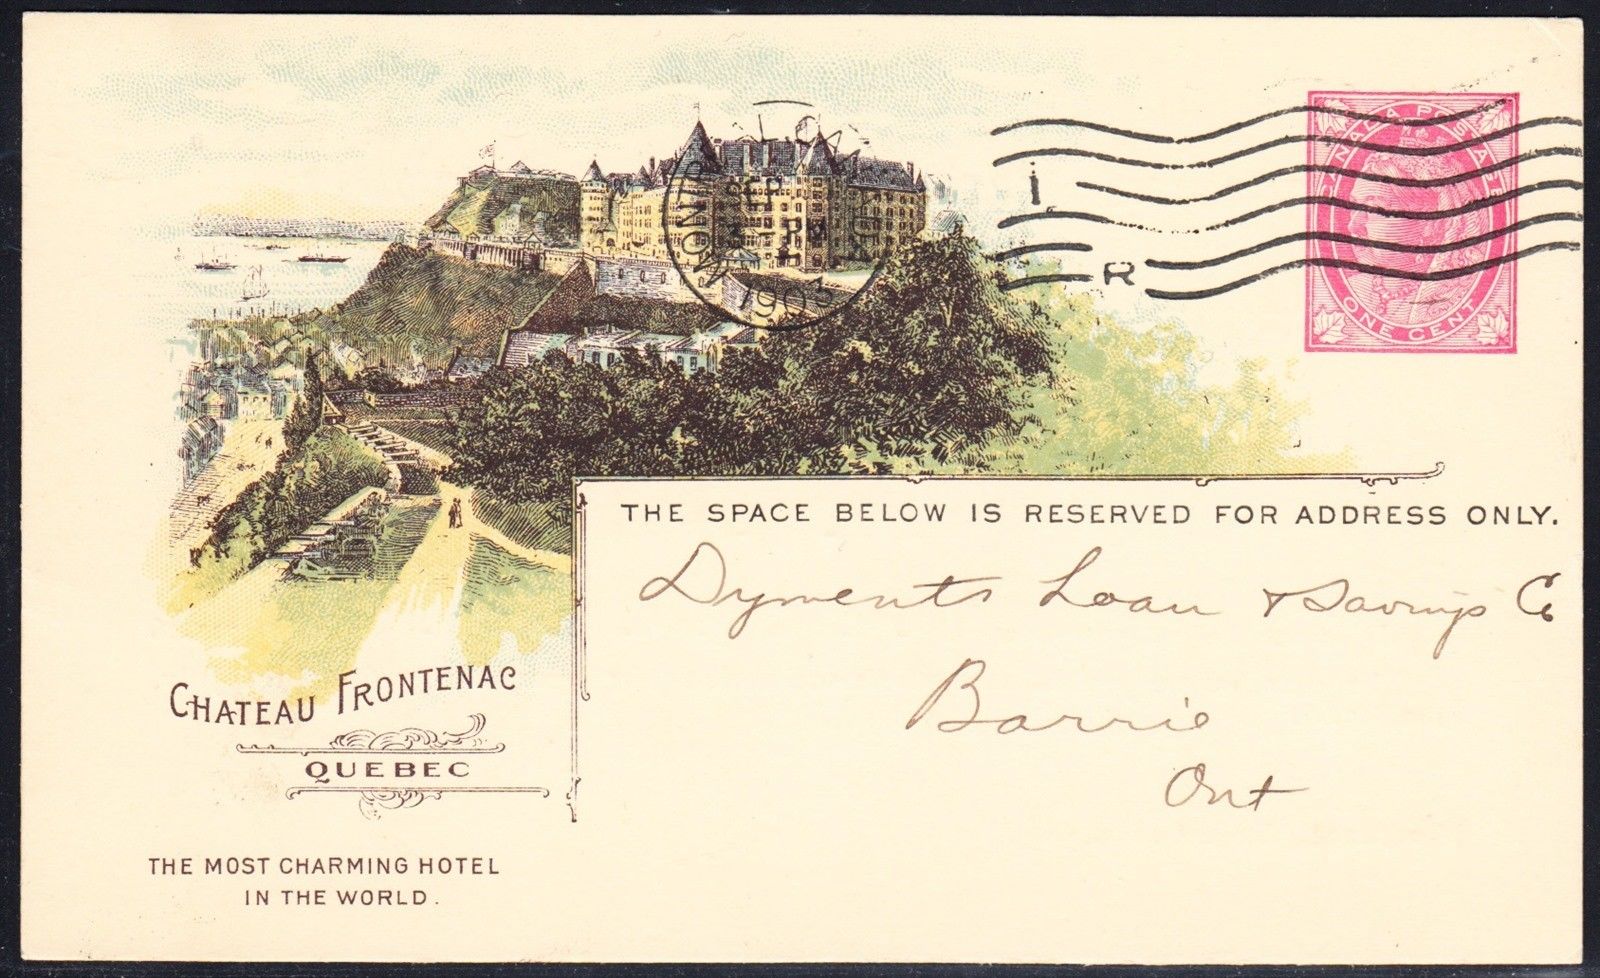 CANADA POSTAGE
ONE CENT
MONTREAL CAN
SEP
PM
1903
I
R
THE SPACE BELOW IS RESERVED FOR ADDRESS ONLY.
Dyments Loan & Savings Co
Barrie
Ont
CHATEAU FRONTENAC
QUEBEC
THE MOST CHARMING HOTEL
IN THE WORLD.